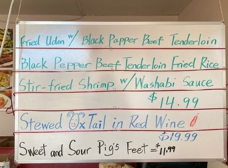 Fried Udon w/ Black Papper Beef Tenderloin
Black Pepper Beef Tenderloin Fried Rice
Stir-fried Shrimp w/ Washabi Sauce
$14.99
Stewed OxTail in Red Wine
$19.99
Sweet and Sour Pig's Feet - $11.99